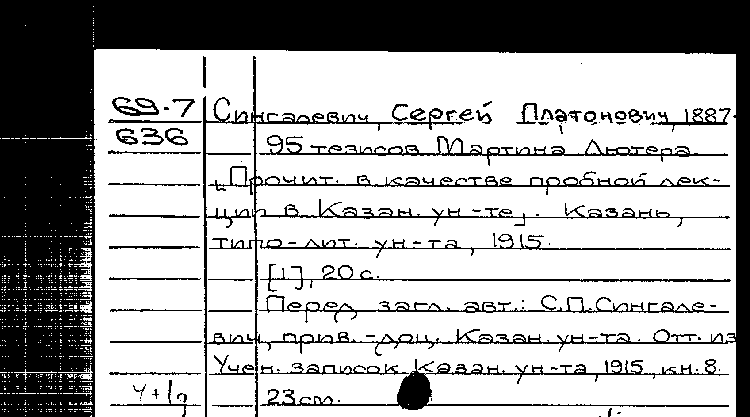 69-7 Сингалевич, Сергей Платонович, 1887-
636 95 тезисов Мартина Лютера
[Прочит. в качестве пробной лек-
ции в Казан. ун-те]. Казань,
типо-лит. ун-та, 1915.
[1], 20 с.
Перед загл. авт.: С.П.Сингале-
вич, прив.-доц. Казан. ун-та. Отт. из
Учен. записок Казан. ун-та, 1915, кн. 8.
23 см.